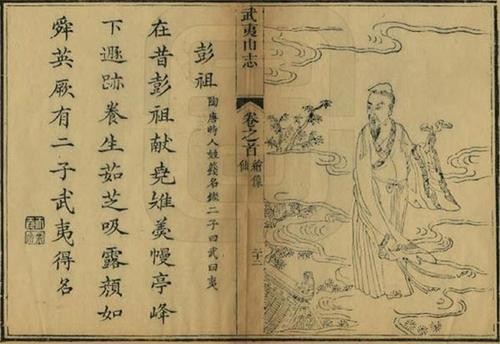 武夷山志
卷之首
繪像
仙
彭祖
陶唐時人姓籛名鏗二子曰武曰夷
在昔彭祖献堯雉羹慢亭峰
下遯跡養生茹芝吸露顏如
舜英厥有二子武夷得名